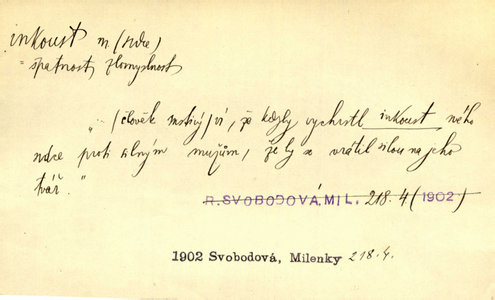 inkoust m (srdce)
= špatnost, zlomyslnost
„ (člověk mstivý) ví, že kdyby vychrstl inkoust svého
srdce proti silným mužům, že by se vrátil silou na jeho
tvář.“
R. SVOBODOVÁ MIL. 218.4 (1902)
1902 Svobodová, Milenky 218.4.